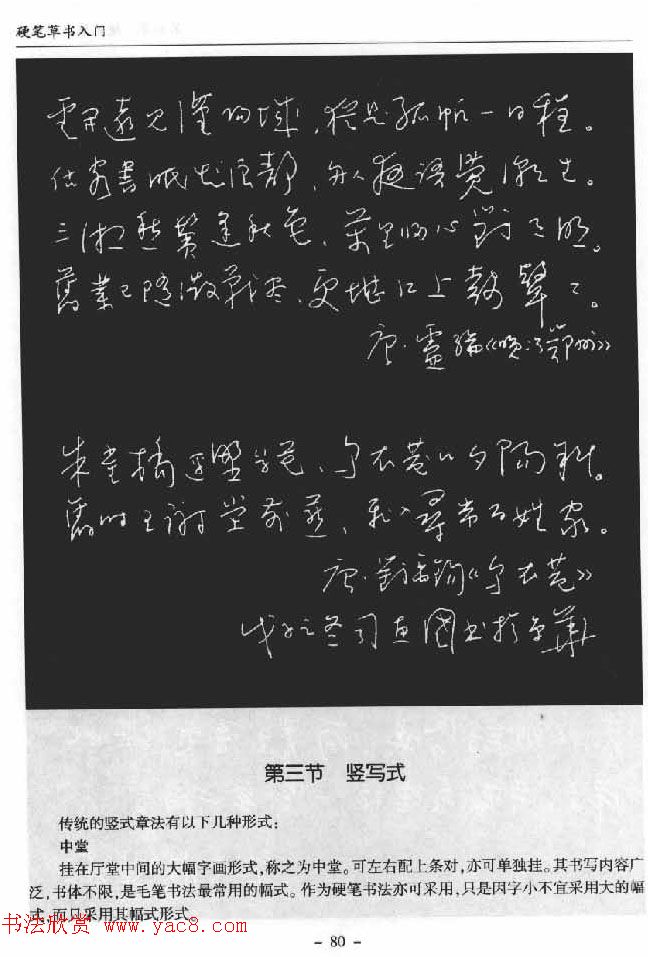 硬笔草书入门
雲開遠見漢陽城，猶是孤帆一日程。
估客晝眠知浪静，舟人夜語覺潮生。
三湘愁鬢逢秋色，萬里歸心對月明。
舊業已隨征戰盡，更堪江上鼓鼙聲。
唐·盧綸《晚次鄂州》
朱雀橋邊野草花，烏衣巷口夕陽斜。
舊時王謝堂前燕，飛入尋常百姓家。
唐·劉禹錫《烏衣巷》
戊子之冬司惠國書於京華
第三节 竖写式
传统的竖式章法有以下几种形式：
中堂
挂在厅堂中间的大幅字画形式，称之为中堂。可左右配上条对，亦可单独挂。其书写内容广
泛，书体不限，是毛笔书法最常用的幅式。作为硬笔书法亦可采用，只是因字小不宜采用大的幅
式，而只采用其幅式形式。
书法欣赏 www.yac8.com
- 80 -